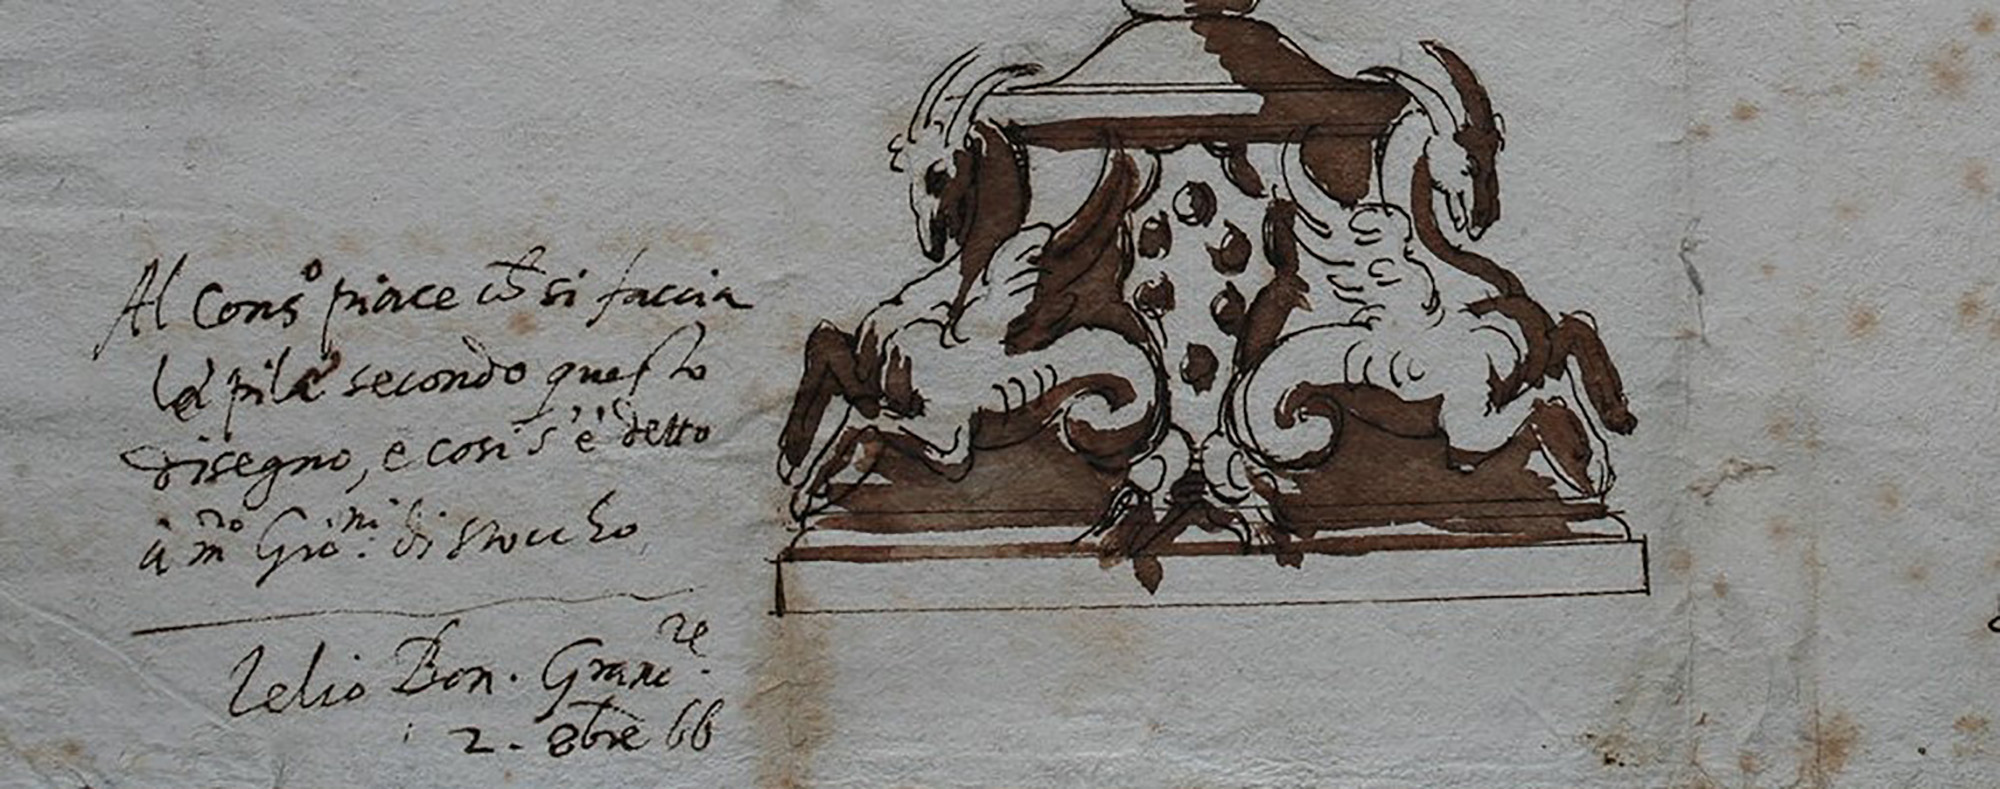 Al Cons.o piace ch si faccia
la pila secondo questo
disegno, e cosi s'è detto
à m.ro Gio: di stoccho
Lelio Bon. Granc.re
2. 8bre 66